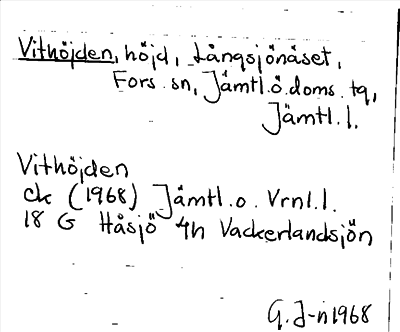 Vithöjden, höjd, Långsjönäset,
Fors sn, Jämtl.ö.doms. tg,
Jämtl.l.
Vithöjden
ck (1968) Jämtl.o. Vrnl.l.
18 G Håsjö 4h Vackerlandsjön
G.J-n 1968